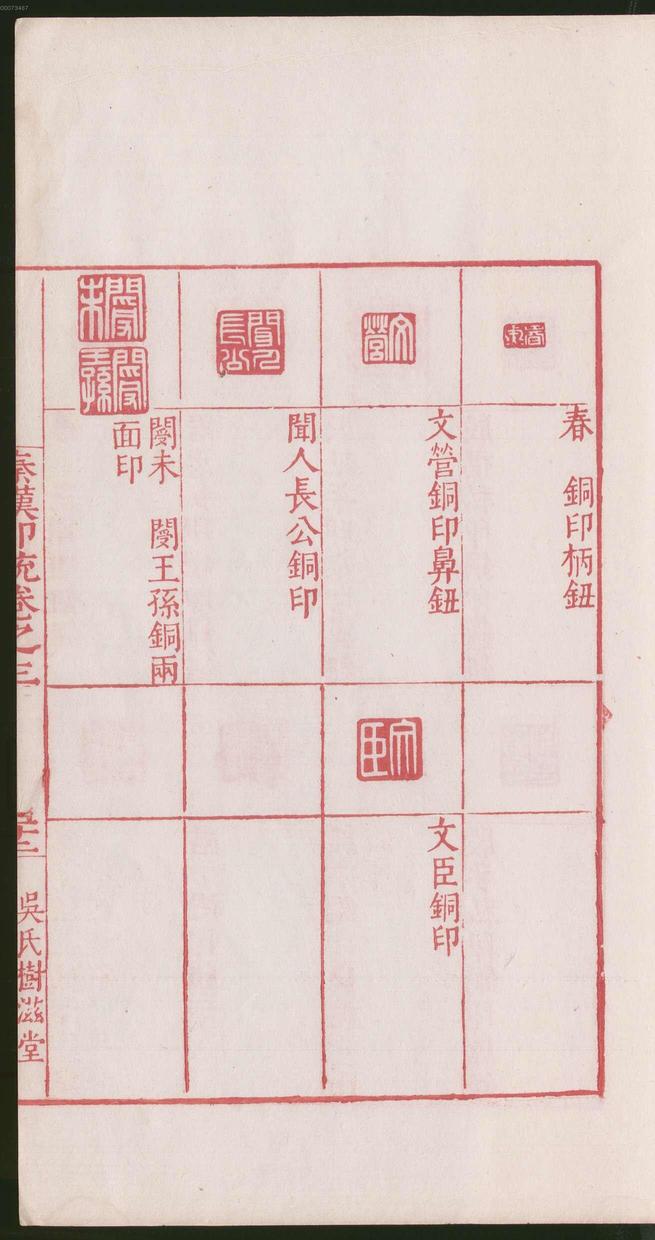 00073467
春　銅印柄鈕
文營銅印鼻鈕
文臣銅印
聞人長公銅印
閿未　閿王孫銅兩
面印
秦漢印統卷之三
吳氏樹滋堂